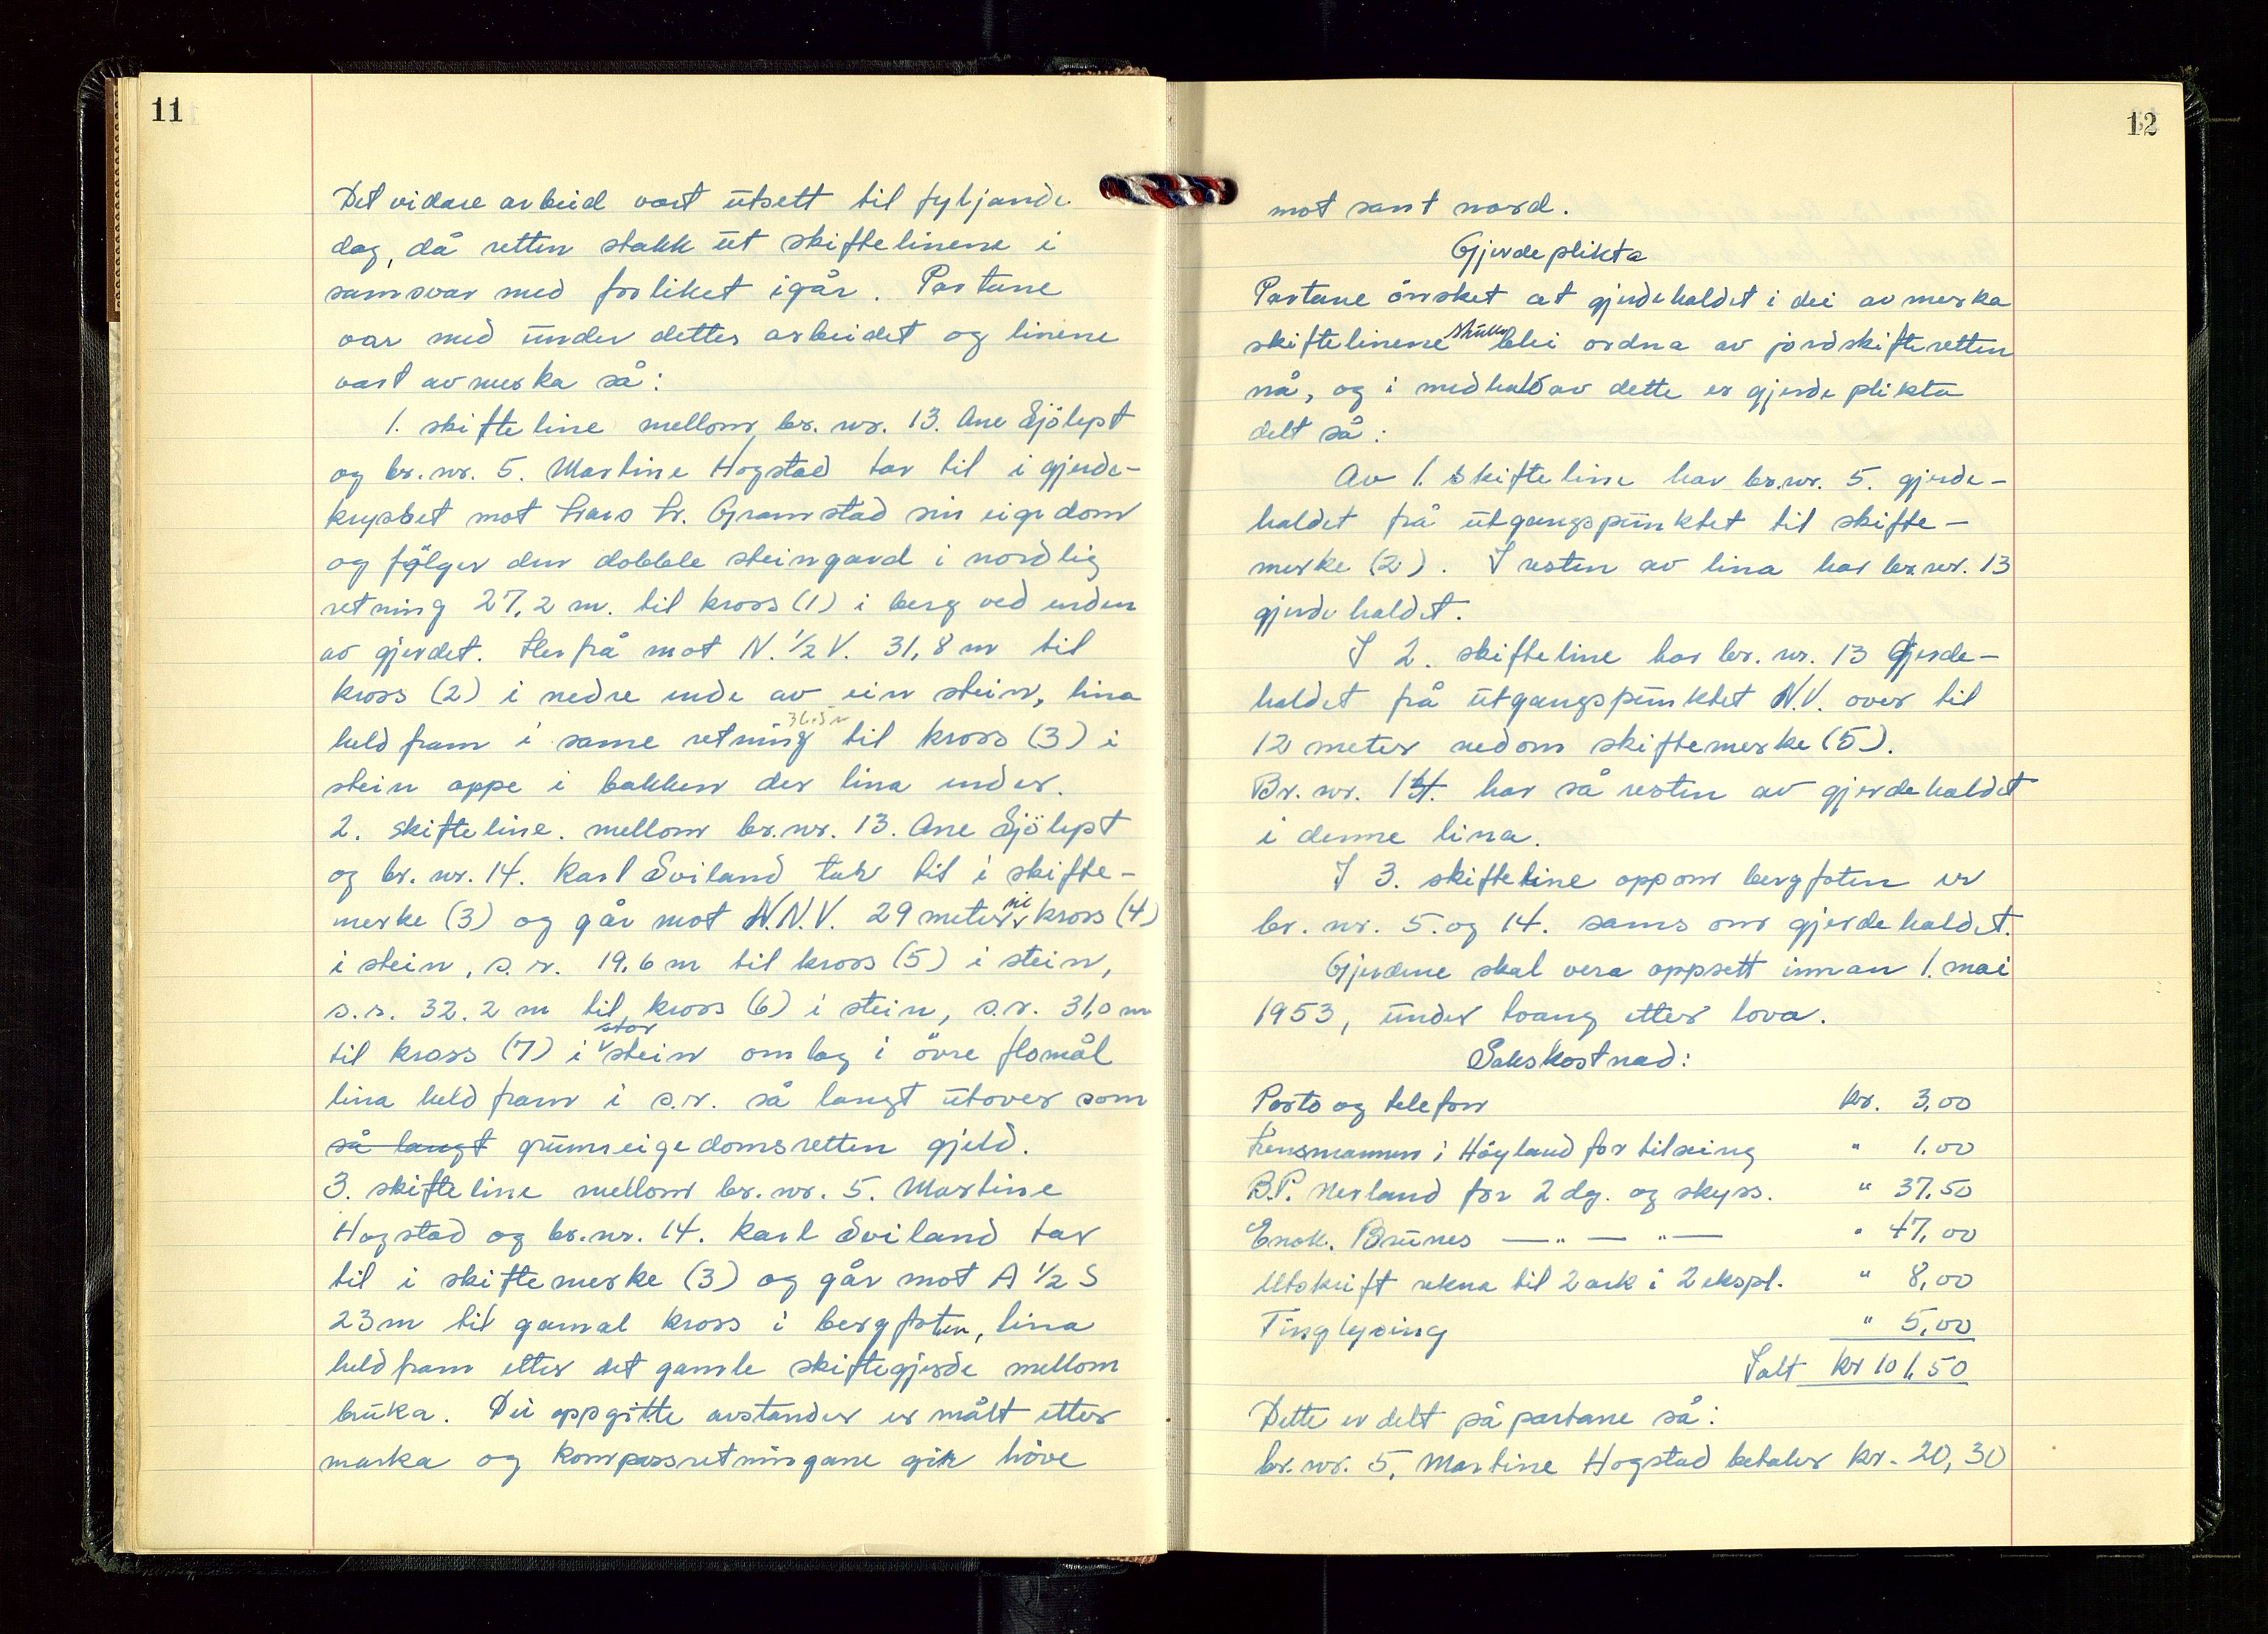 11
Det vidare arbeid vart utsett til fyljande
dag, då retten stakk ut skiftelinene i
samsvar med forliket igår. Partane
var med under dettes arbeidet og linene
vart avmerka så:
1. skifteline mellom br. nr. 13. Ane Sjölyst
og br. nr. 5. Martine Hogstad tar til i gjerde-
krysset mot Lars Lr. Gramstad sin eigedom
og fölger den dobble steingard i nordlig
retning 27,2 m. til kross (1) i berg ved enden
av gjerdet. Herfrå mot N. ½ V. 31,8 m til
kross (2) i nedre ende av ein stein, lina
held fram i same retning til kross (3) i
stein oppe i bakken der lina ender.
2. skifteline. mellom br. nr. 13. Ane Sjölyst
og br. nr. 14. Karl Sviland tar til i skifte-
merke (3) og går mot N.N.V. 29 meter kross (4)
i stein, s.r. 19,6 m til kross (5) i stein,
s.r. 32.2 m til kross (6) i stein, s.r. 31,0 m
til kross (7) i stor stein omlag i övre flomål
lina held fram i s.r. så langt utover som
så langt grunneigedomsretten gjeld.
3. skifteline mellom br. nr. 5. Martine
Hogstad og br. nr. 14. Karl Sviland tar
til i skiftemerke (3) og går mot A ½ S
23 m til gamal kross i bergfoten, lina
held fram etter det gamle skiftegjerde mellom
bruka. Dei oppgitte avstander er målt etter
marka og kompassretningane gir höve
12
mot sant nord.
Gjerdeplikta
Partane önsket at gjerdehaldet i dei avmerka
skiftelinene skulle blei ordna av jordskifteretten
nå, og i medhald av dette er gjerdeplikta
delt så:
Av 1. skifteline har br. nr. 5. gjerde-
haldet frå utgangspunktet til skifte-
merke (2). I resten av lina har br. nr. 13
gjerdehaldet.
I 2. skifteline har br. nr. 13 gjerde-
haldet frå utgangspunktet N.V. over til
12 meter nedom skiftemerke (5).
Br. nr. 14. har så resten av gjerdehaldet
i denne lina.
I 3. skifteline oppom bergfoten er
br. nr. 5. og 14. sams om gjerdehaldet.
Gjerdene skal vera oppsett innan 1. mai
1953, under tvang etter lova.
Sakskostnad:
Porto og telefon kr. 3,00
Lensmannen i Höyland for tilseing " 1.00
B.P. Nerland for 2 dg. og skyss. " 37,50
Enok. Brunes — " — " — " 47,00
Utskrift rekna til 2 ark i 2 ekspl. " 8,00
Tinglysing " 5,00
Ialt kr 101,50
Dette er delt på partane så:
br. nr. 5, Martine Hogstad betaler kr. 20,30